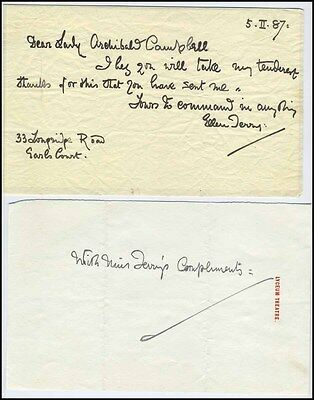 5. II. 87.
Dear Lady Archibald Campbell
I beg you will take my tenderest
thanks for this that you have sent me.
Yours to command in anything
Ellen Terry.
33 Longridge Road
Earls Court.
With Miss Terry's Compliments =
LYCEUM THEATRE.